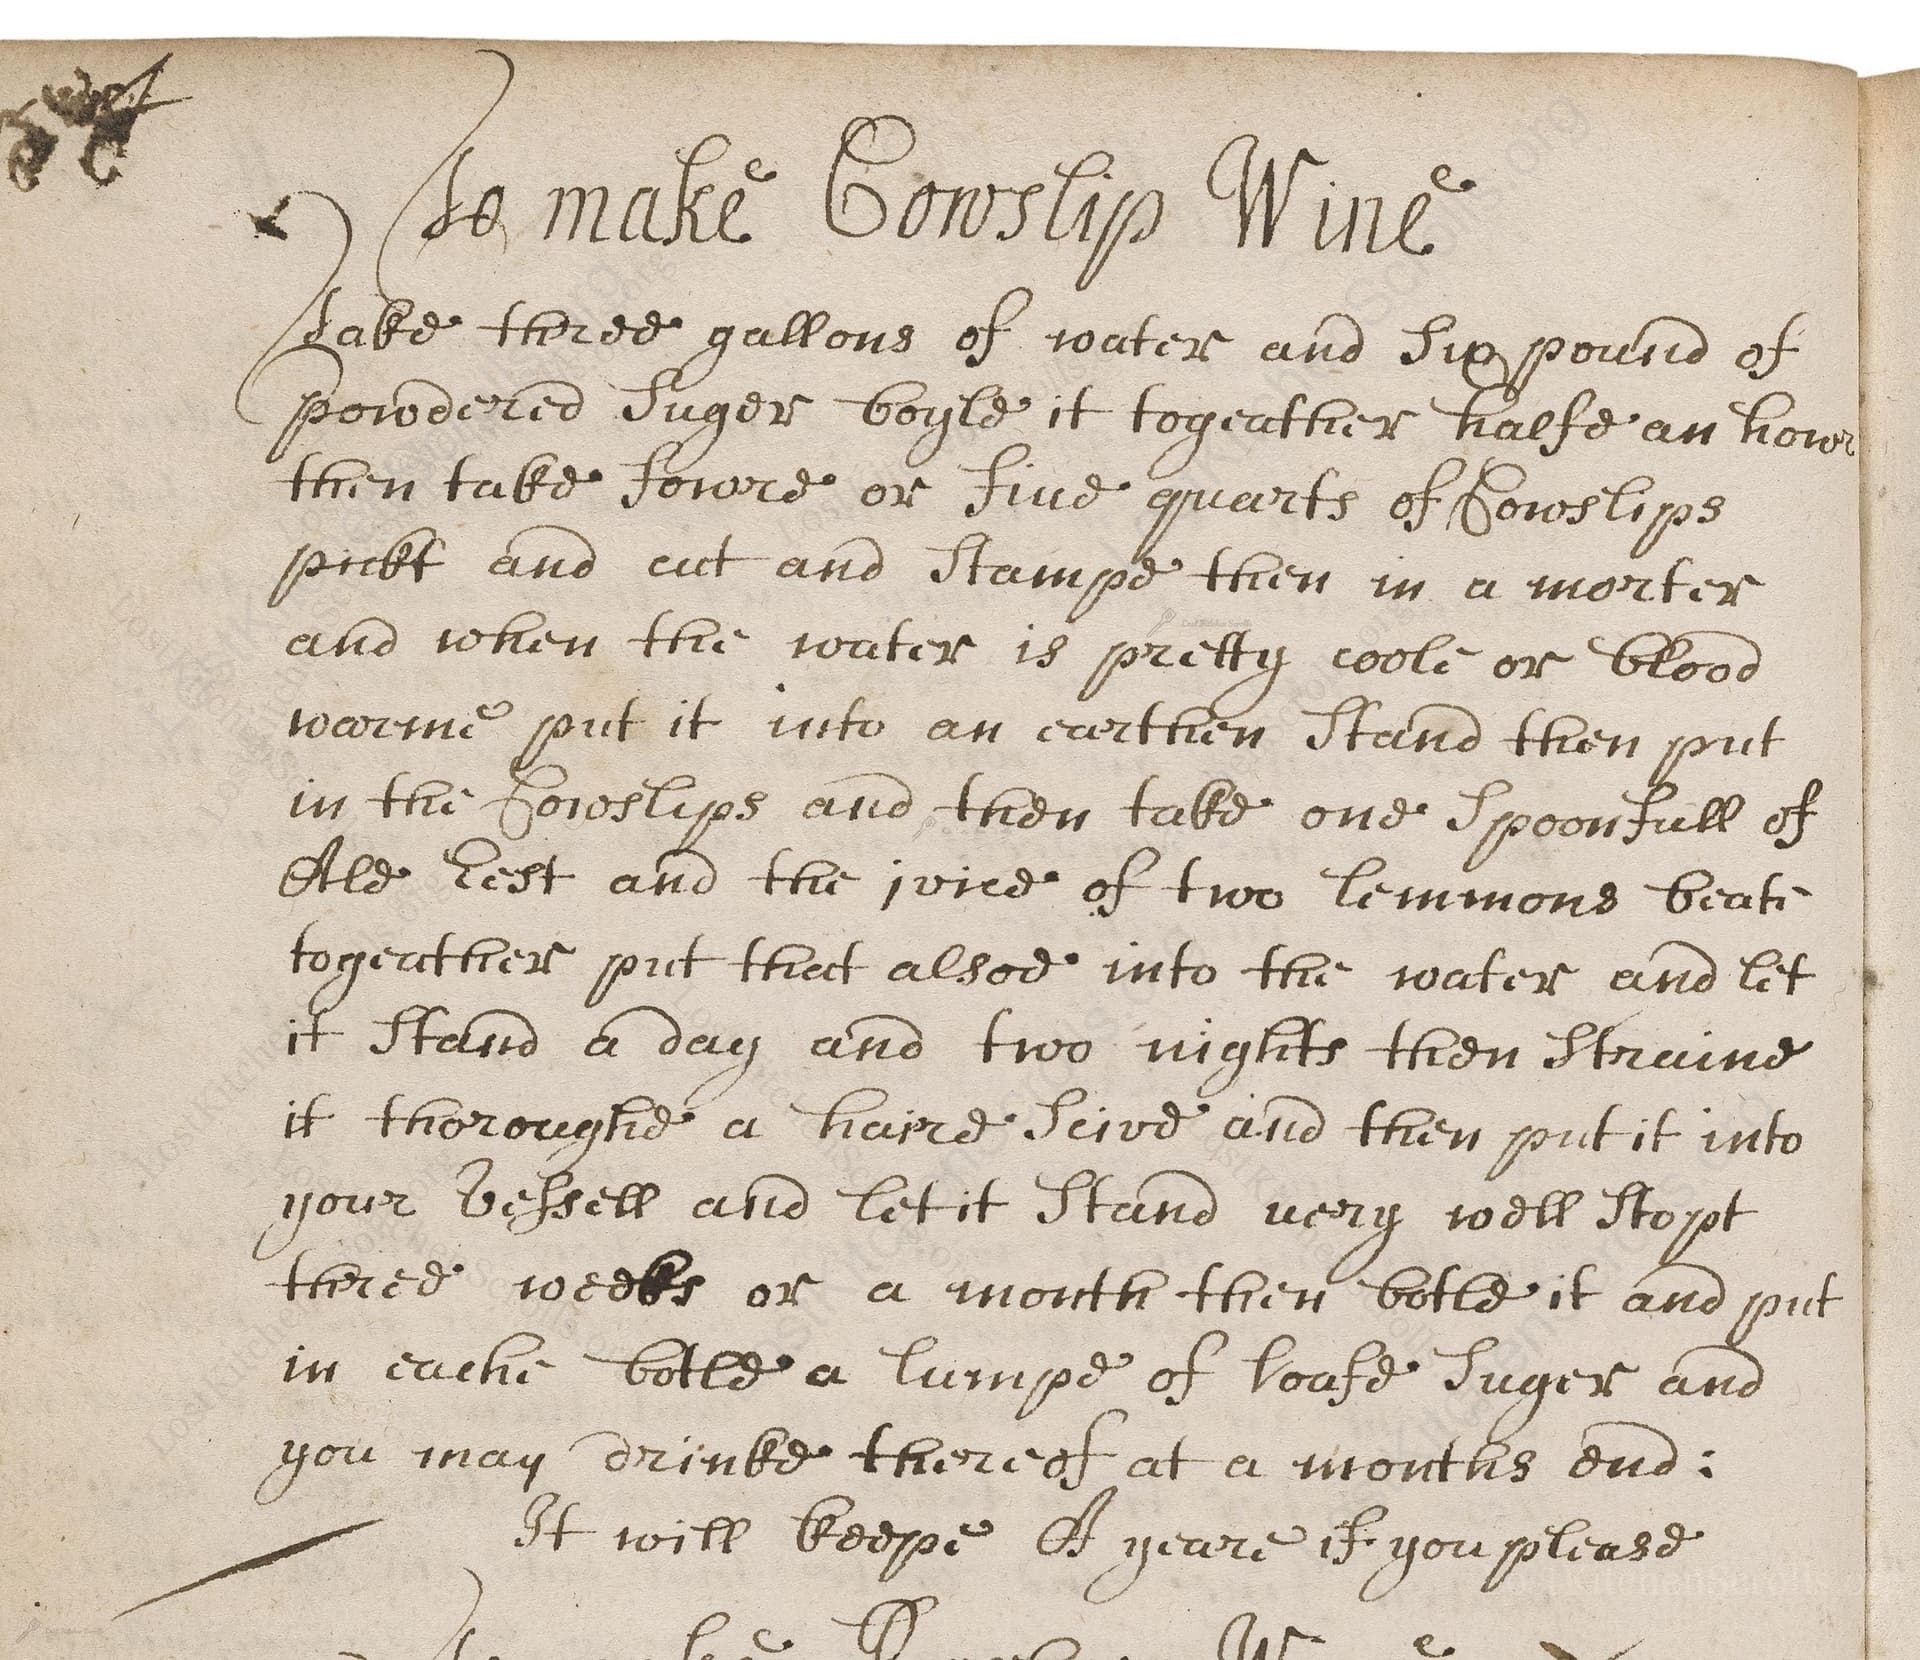 To make Cowslip Wine
Take three gallons of water and Six pound of
powdered Suger boyle it togeather halfe an howr
then take fowre or five quarts of Cowslips
pickt and cut and Stampe then in a morter
and when the water is pretty coole or blood
warme put it into an earthen Stand then put
in the Cowslips and then take one Spoonfull of
Ale Yest and the juice of two lemmons beate
togeather put that alsoe into the water and let
it Stand a day and two nights then Straine
it thoroughe a haire Seive and then put it into
your Vessell and let it Stand uery well Stopt
three weeks or a month then botle it and put
in eache botle a lumpe of loafe Suger and
you may drinke thereof at a months end:
It will keepe A yeare if you please